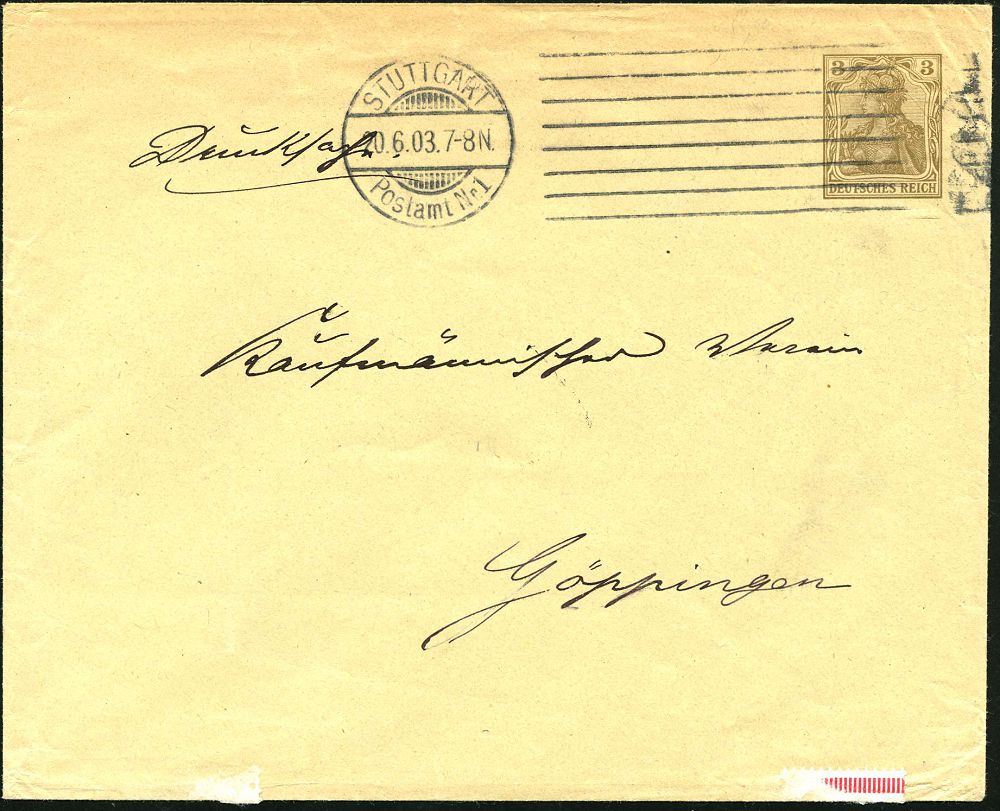 STUTTGART
3 3
Drucksache.
0.6.03.7-8N.
Postamt Nr1
DEUTSCHES REICH
Kaufmännischer Verein
Göppingen